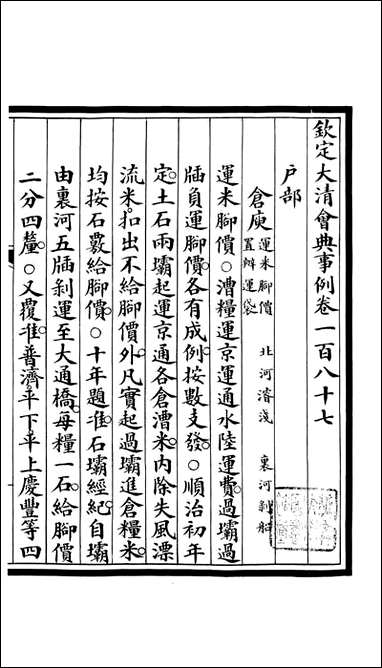 欽定大清會典事例卷一百八十七
戶部
倉庾 運米腳價 北河濬淺 裏河剝船 置辦運袋
運米腳價○漕糧運京運通水陸運費過壩過
牐負運腳價各有成例按數支發○順治初年
定土石兩壩起運京通各倉漕米内除失風漂
流米扣出不給腳價外凡實起過壩進倉糧米
均按石數給腳價○十年題准石壩經紀自壩
由裏河五牐剝運至大通橋每糧一石給腳價
二分四釐○又覆准普濟平下平上慶豐等四